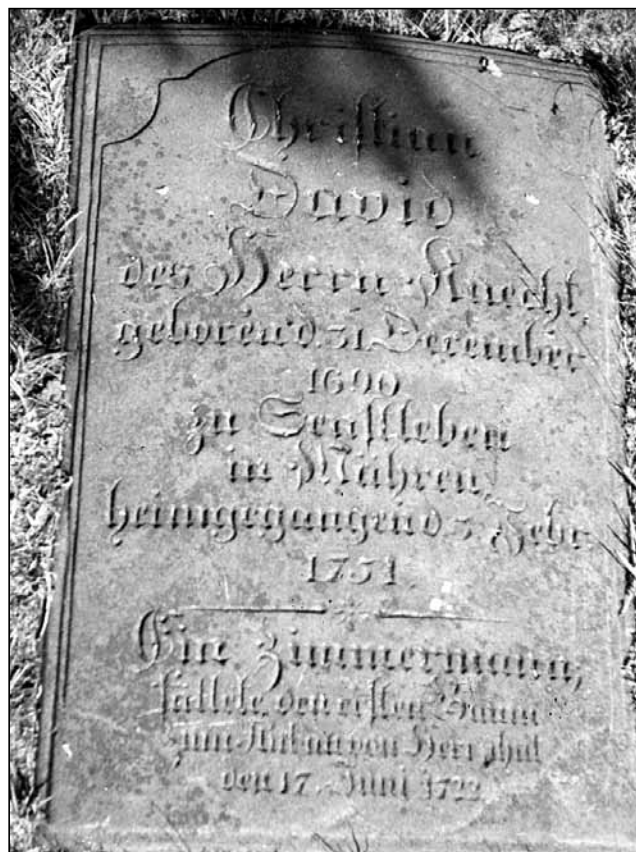 Christian
David
des Herrn Knecht,
geboren d. 31. December
1690
zu Senftleben
in Mähren,
heimgegangen d. 3. Febr.
1751.
Ein Zimmermann,
fällete den ersten Baum
zum Anbau von Herrnhut
den 17. Juni 1722